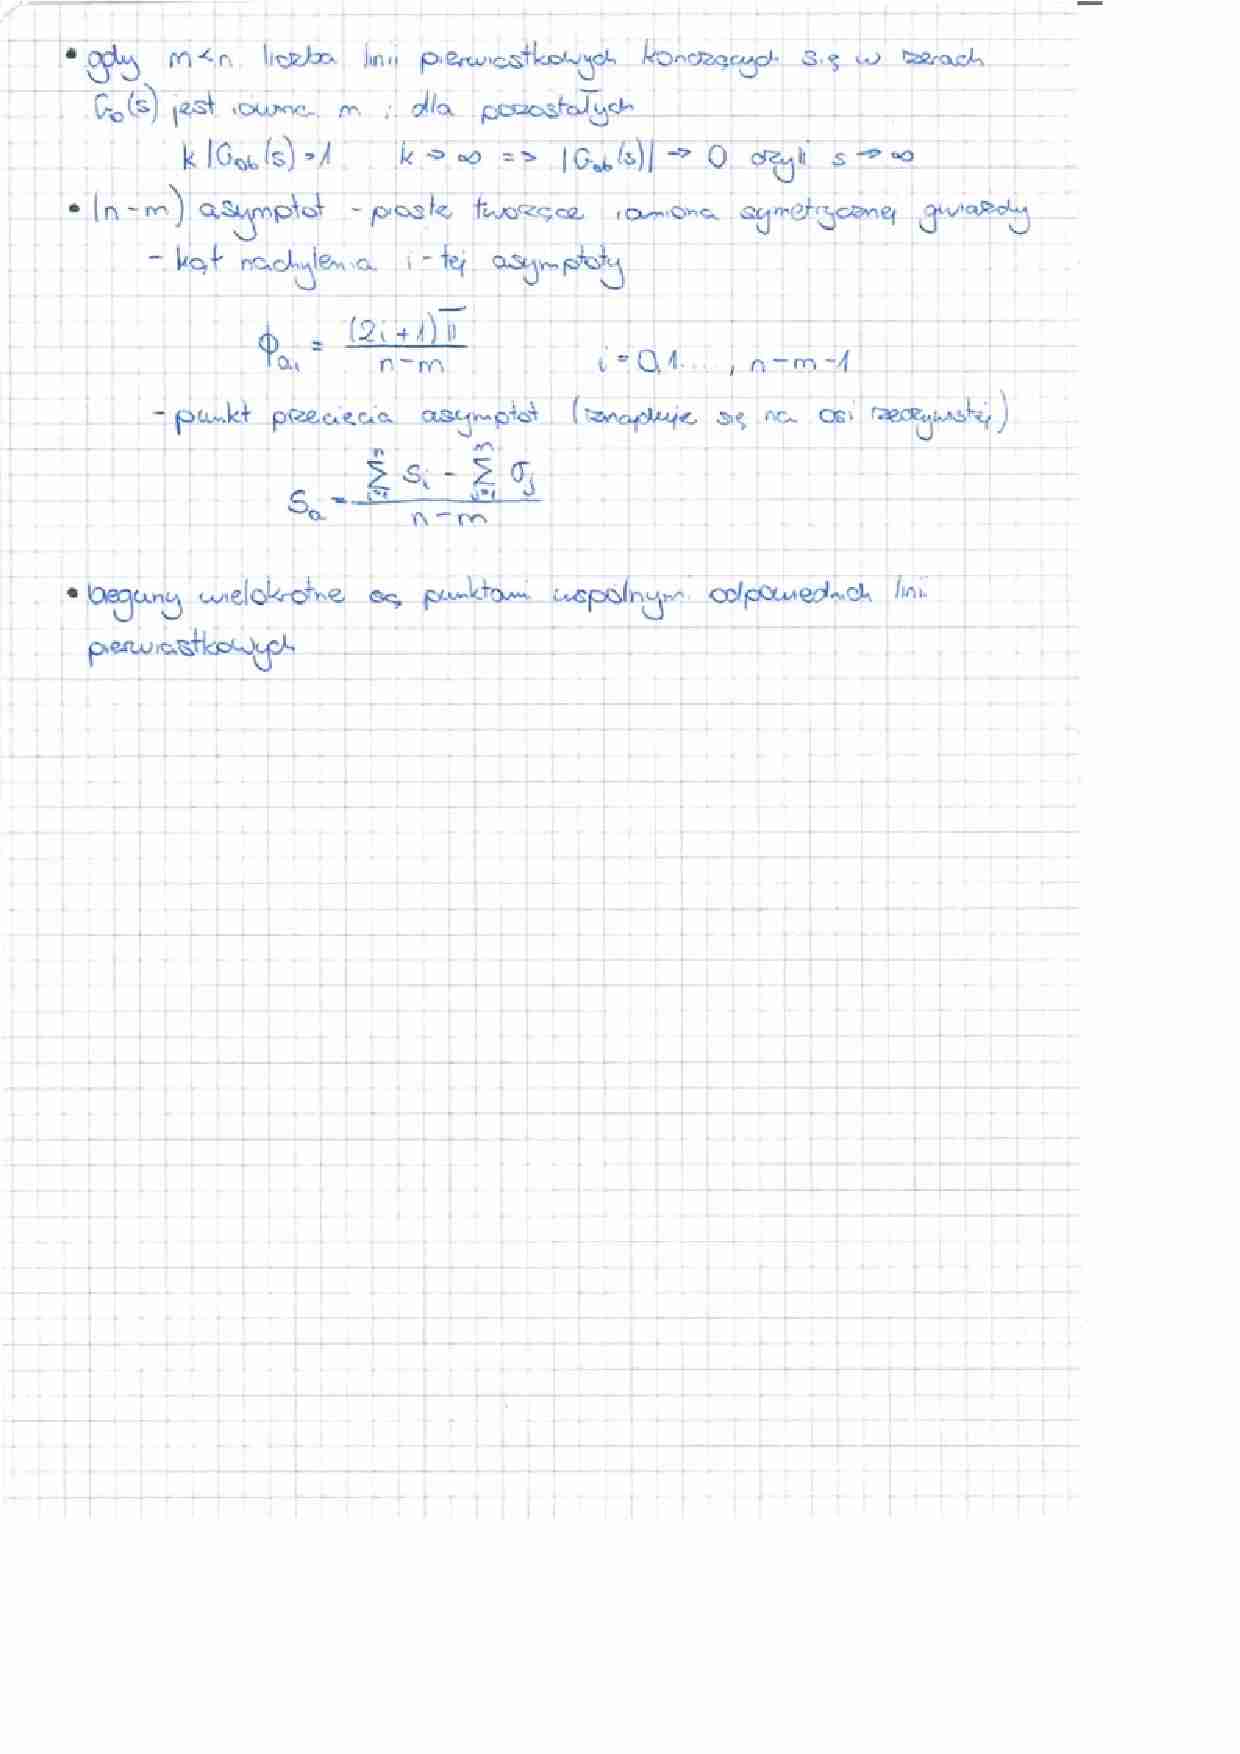 • gdy m<n liczba linii pierwiastkowych kończących się w zerach
G₀(s) jest równa m i dla pozostałych
k|G₀ᵦ(s)=1 k→∞ => |G₀ᵦ(s)|→0 czyli s→∞
• (n-m) asymptot - proste tworzące ramiona symetrycznej gwiazdy
- kąt nachylenia i-tej asymptoty
ϕ_ai = (2i+1)π / n-m i=0,1..., n-m-1
- punkt przecięcia asymptot (znajduje się na osi rzeczywistej)
S_a = ∑_{i=1}^{n} S_i - ∑_{j=1}^{m} σ_j / n-m
• bieguny wielokrotne są punktami wspólnymi odpowiednich linii
pierwiastkowych